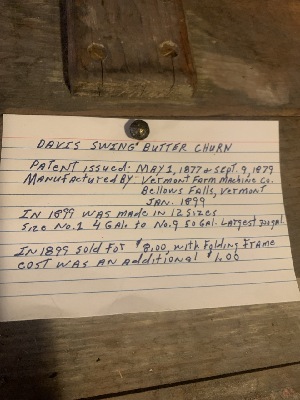 DAVIS SWING BUTTER CHURN
PATENT ISSUED: MAY 1, 1877 & SEPT. 9, 1879
MANUFACTURED BY: VERMONT FARM MACHINE CO.
BELLOWS FALLS, VERMONT
JAN. 1899
IN 1899 WAS MADE IN 12 SIZES
SIZE NO. 1 4 GAL. TO NO. 9 50 GAL. LARGEST 300 GAL.
IN 1899 SOLD FOR $8.00, WITH FOLDING FRAME
COST WAS AN ADDITIONAL $1.00